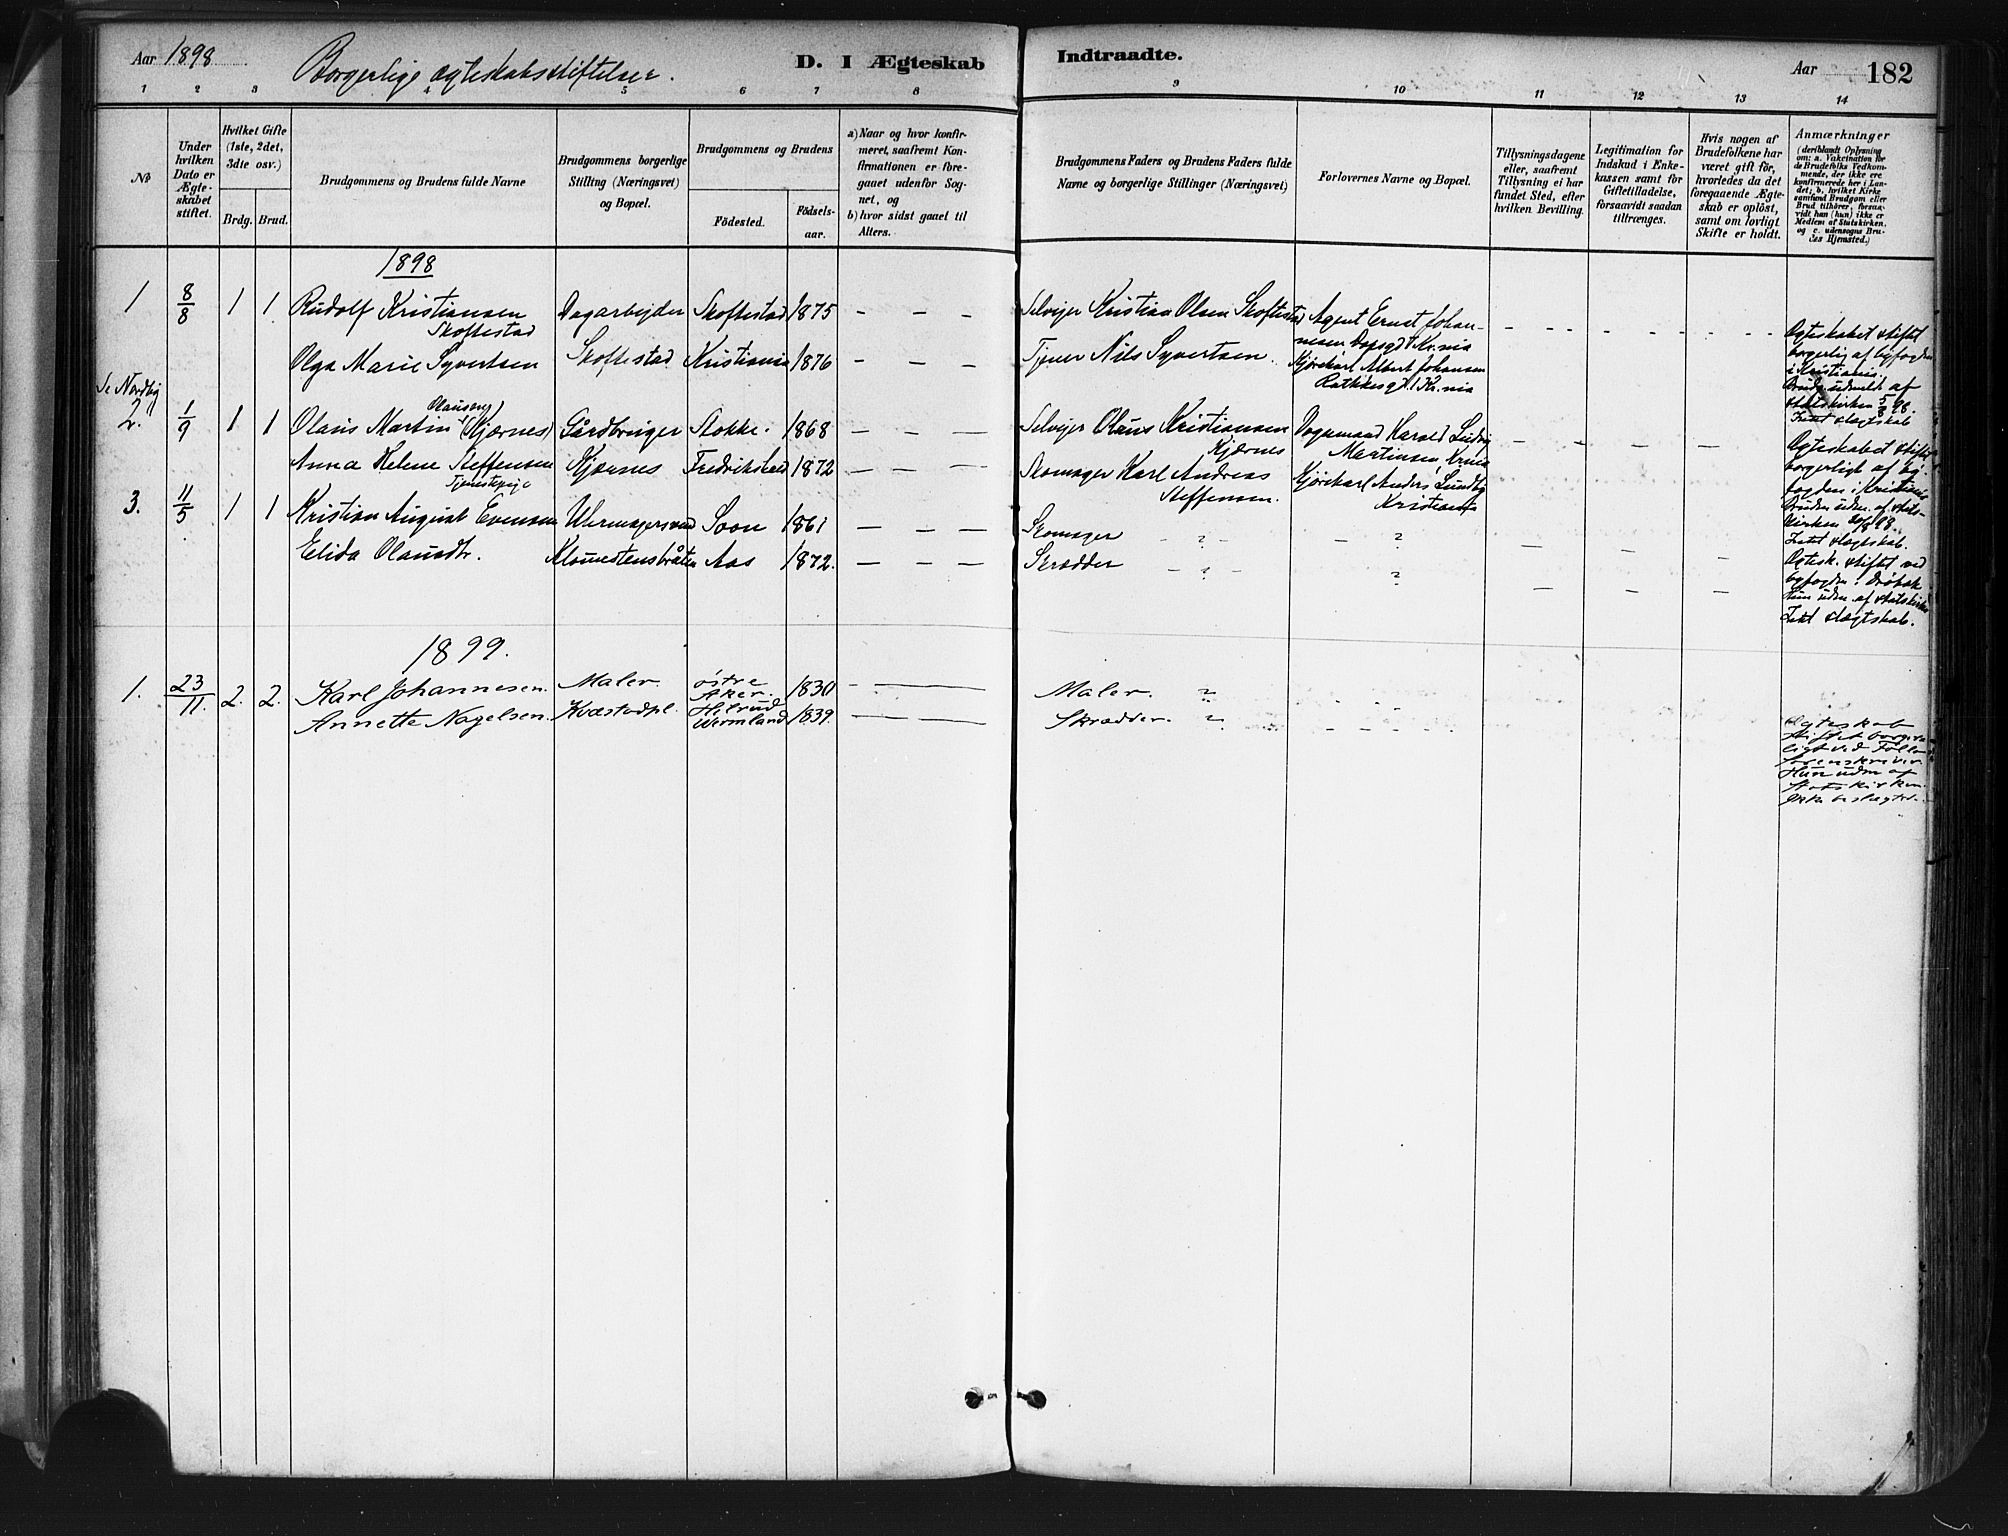 Aar 1898
Borgerlige ægteskabsstiftelser.
D. I Ægteskab
Indtraadte.
Aar
182
1 2 3 4 5 6 7 8 9 10 11 12 13 14
No
Under hvilken Dato er Ægteskabet stiftet.
Hvilket Gifte (1ste, 2det, 3dte osv.)
Brdg. Brud.
Brudgommens og Brudens fulde Navne
Brudgommens borgerlige Stilling (Næringsvei) og Bopæl.
Brudgommens og Brudens
Födested.
Födsels-aar.
a) Naar og hvor konfirmeret, saafremt Konfirmationen er foregaaet udenfor Sognet, og
b) hvor sidst gaaet til Alters.
Brudgommens Faders og Brudens Faders fulde Navne og borgerlige Stillinger (Næringsvei)
Forlovernes Navne og Bopæl.
Tillysningsdagene eller, saafremt Tillysning ei har fundet Sted, efter hvilken Bevilling.
Legitimation for Indskud i Enkekassen samt för Giftetilladelse, forsaavidt saadan tiltrænges.
Hvis nogen af Brudefolkene har været gift för, hvorledes da det foregaaende Ægteskab er oplöst, samt om lovligt Skifte er holdt.
Anmærkninger
(deriblandt Oplysning om: a. Vakcination for de Brudefolks Vedkommende, der ikke ere konfirmerede her i Landet; b. hvilket Kirkesamfund Brudgom eller Brud tilhörer, forsaavidt han (hun) ikke er Medlem af Statskirken, og c. udensogns Brudes Hjemsted.)
1898
1 8/8 1 1 Rudolf Kristiansen Dagarbejder Skoftestad 1875 - - - Selvejer Kristian Olsen Skoftestad Agent Ernst Johan-
Skoftestad
nesen
Kr.nia
Olga Marie Syvertsen Skoftestad Kristiania 1876 - - - Tjener Nils Syvertsen. Kjørekarl Albert Johansen
Rathkesgt. 1 Kr.nia
Ægteskabet stiftet
borgerlig af byfogden
i Kristiania.
Bruden udmeldt af
statskirken 5/8 98.
Intet slægtskab
Se Nordby
2. 1/9 1 1 Olaus Martin Olausen (Kjærnes) Gårdbruger Stokke. 1868 - - - Selvejer Olaus Kristiansen Vognmand Harald Ludvig
Kjærnes Martinsen, Krnia
Anna Helene Steffensen Kjærnes Fredrikshald 1872 - - - Skomager Karl Andreas Kjørekarl Anders Lundby
Tjenestepige
Steffensen. Kristiania
Ægteskabet stiftet
borgerligt af by-
fogden i Kristiania
Bruden udm. af stats-
kirken 20/8 98.
Intet slægtskab.
3. 11/5 1 1 Kristian August Evensen Uhrmagersvend Soon 1861 - - - Skomager - ? - - ?
Elida Olausdtr. Aas 1872. - - - Skrædder - ? - ?
Ægtesk. stiftet ved
byfogden i Drøbak
Hun udm. af statskirken
Intet slægtskab.
1899.
1. 23/11. 2. 2. Karl Johannesen. Maler. østre Aker. 1830 Maler. ?
Annette Nagelsen. Kvæstadpl. Wermland 1839. Skrædder. ?
Ægteskab
stiftet borger-
ligt ved Follo
Sorenskriver
Hun udm af
Statskirken.
Ikke beslægted.